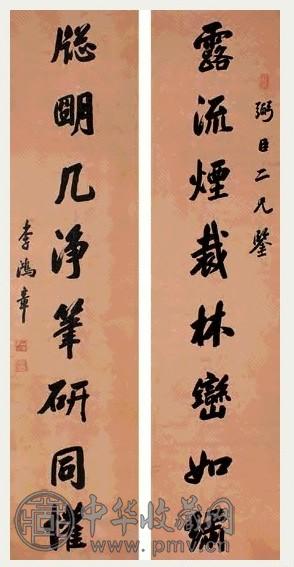 弼臣二兄鑒
露流煙裁林巒如繡
牕明几淨筆研同懽
李鴻章
中华收藏网
www.pmv.cn